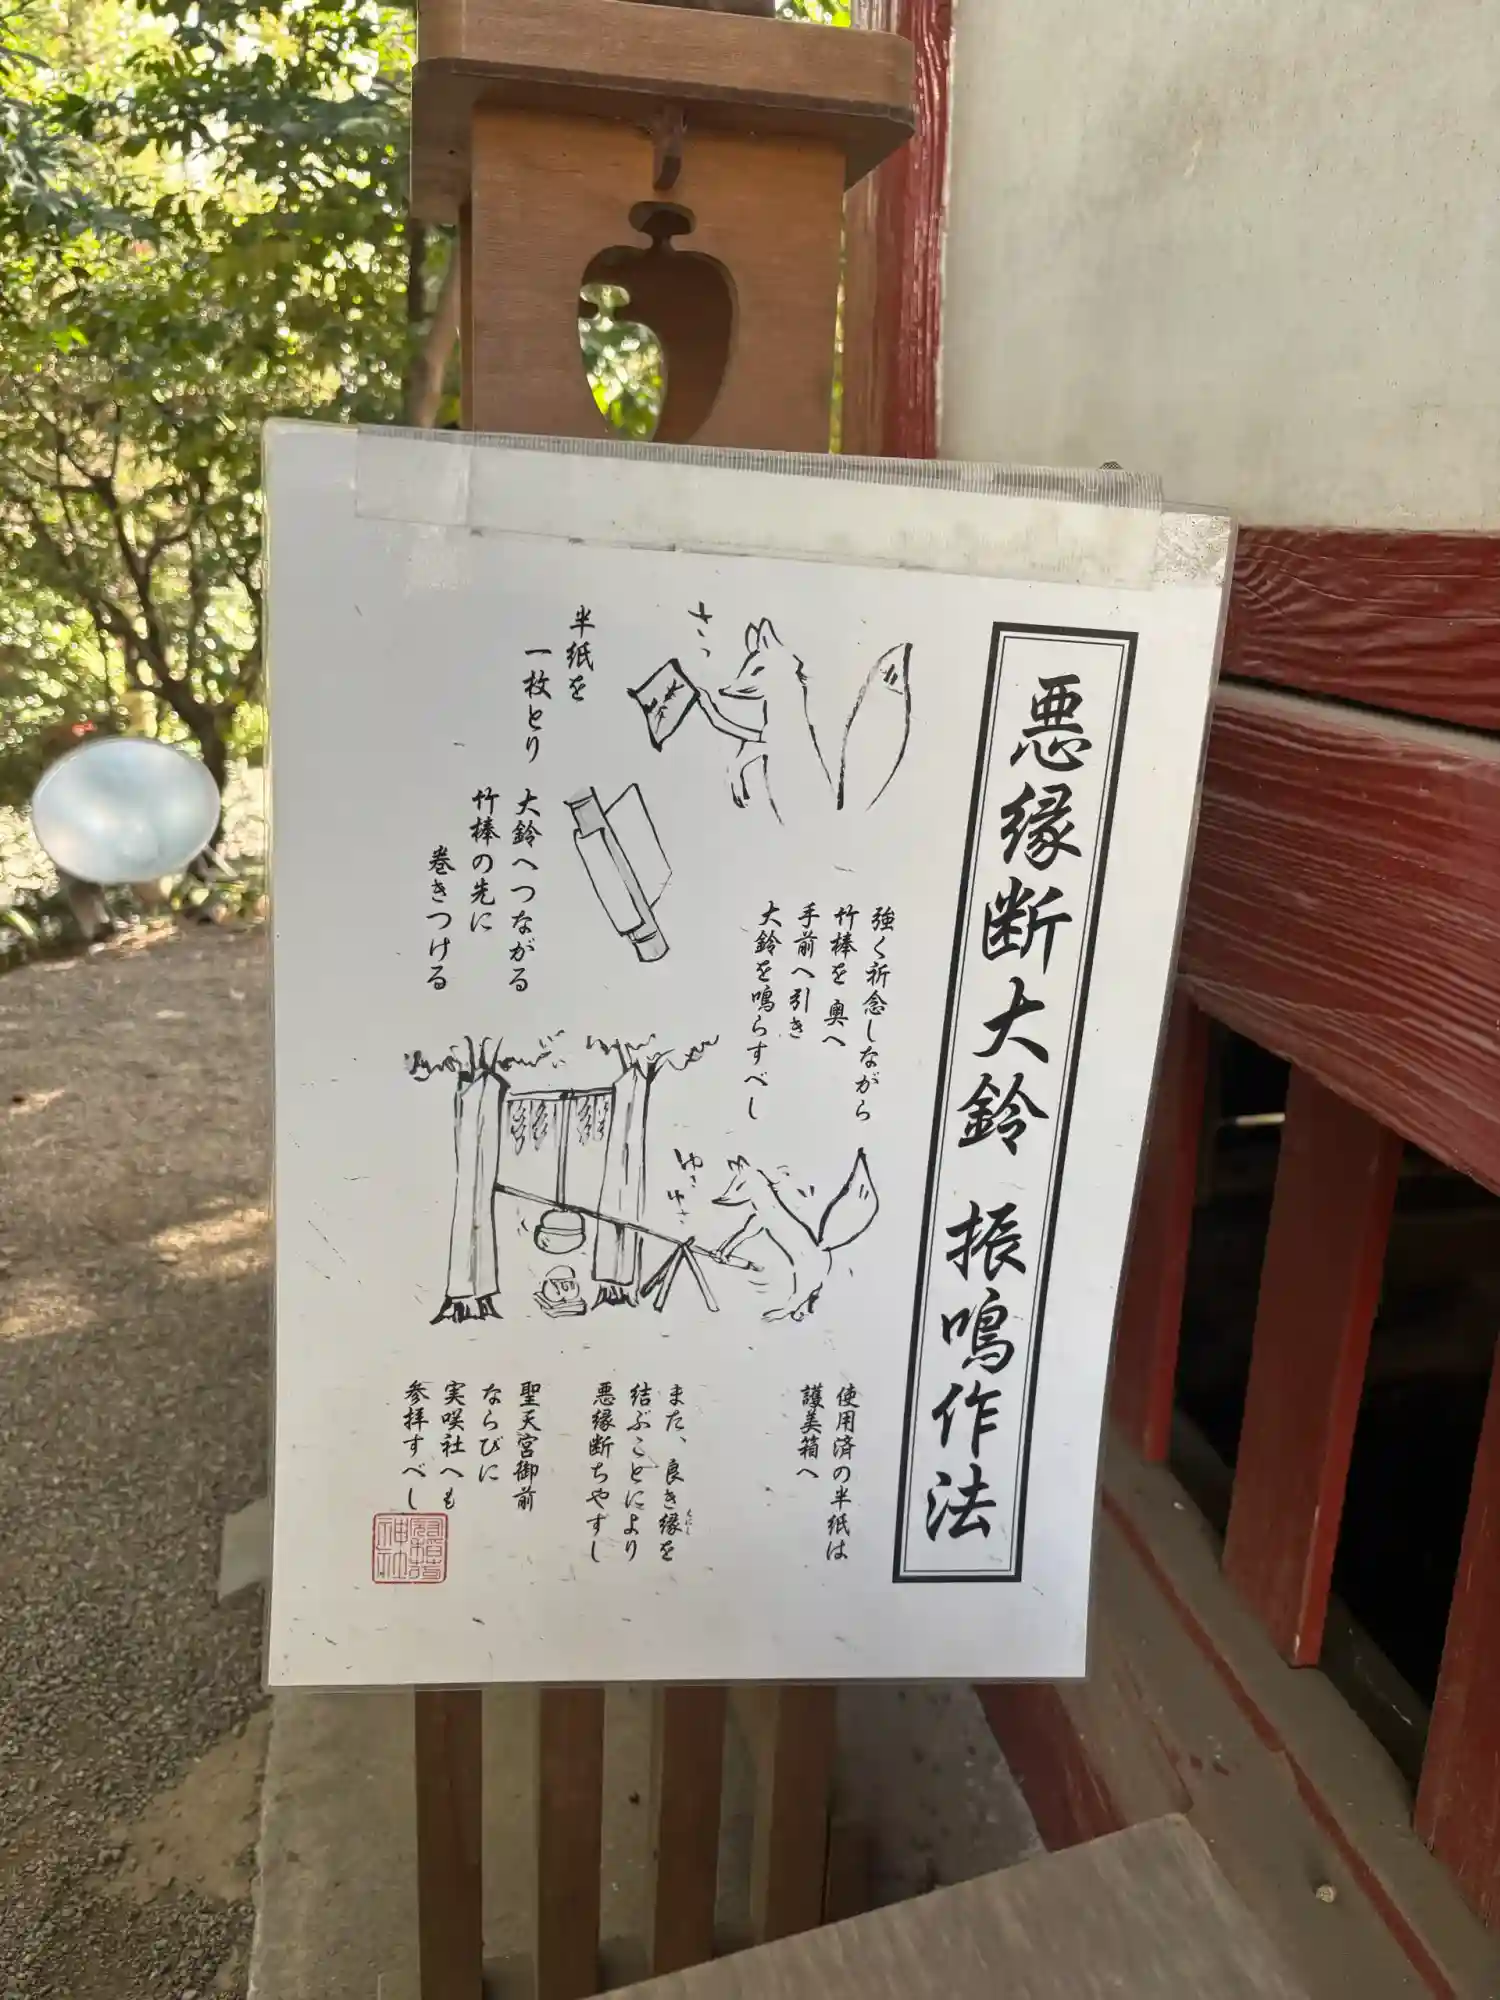 悪縁断大鈴 振鳴作法
さっ
半紙を
一枚とり
大鈴へつながる
竹棒の先に
巻きつける
強く祈念しながら
竹棒を 奥へ
手前へ引き
大鈴を鳴らすべし
ゆさ
ゆさ
使用済の半紙は
護美箱へ
また、良き縁を
結ぶことにより
悪縁断ちやすし
聖天宮御前
ならびに
実咲社へも
参拝すべし
神社